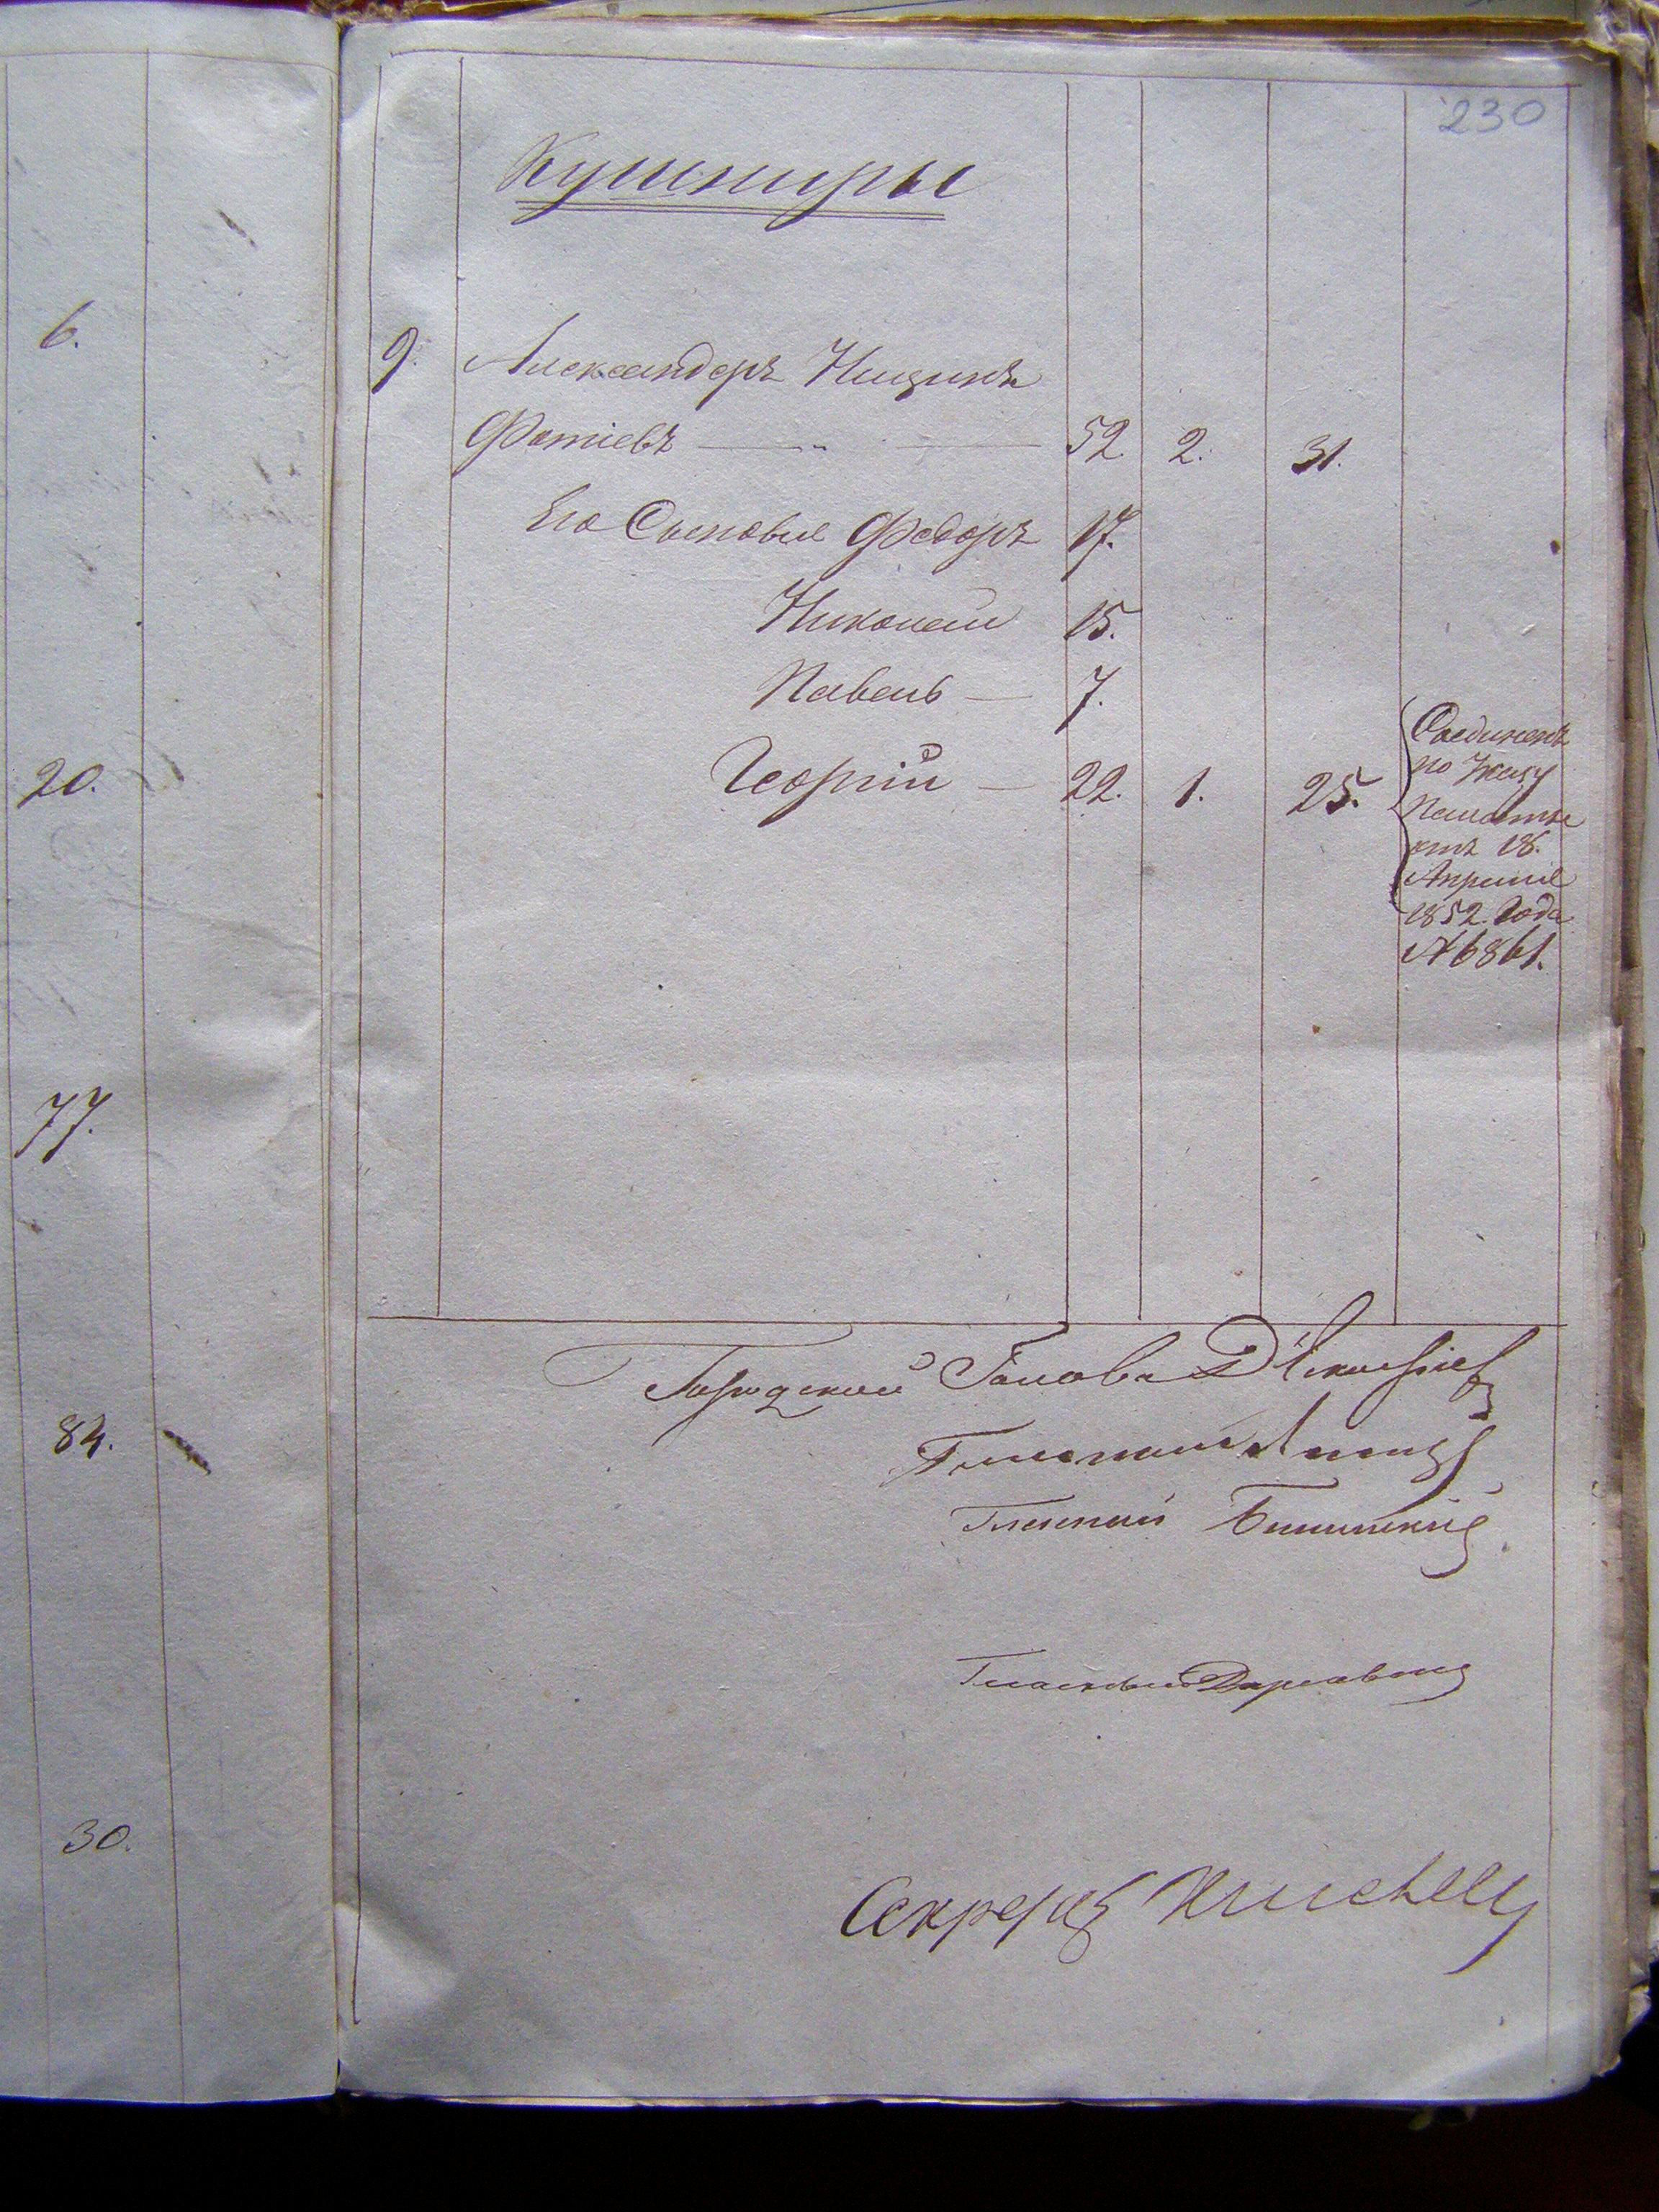 6.
20.
77.
84.
30.
230
Кушниры
9. Александеръ Ницинъ
Фотіевъ 52 2. 31.
Его Сыновья Федоръ 17.
Николай 15.
Павелъ 7.
Георгій 22. 1. 25.
Соединенъ
по Указу
Палаты
отъ 18.
Апреля
1852. Года
№ 6861.
Городской Голова Д
Гласный
Гласный
Гласный
Секретарь